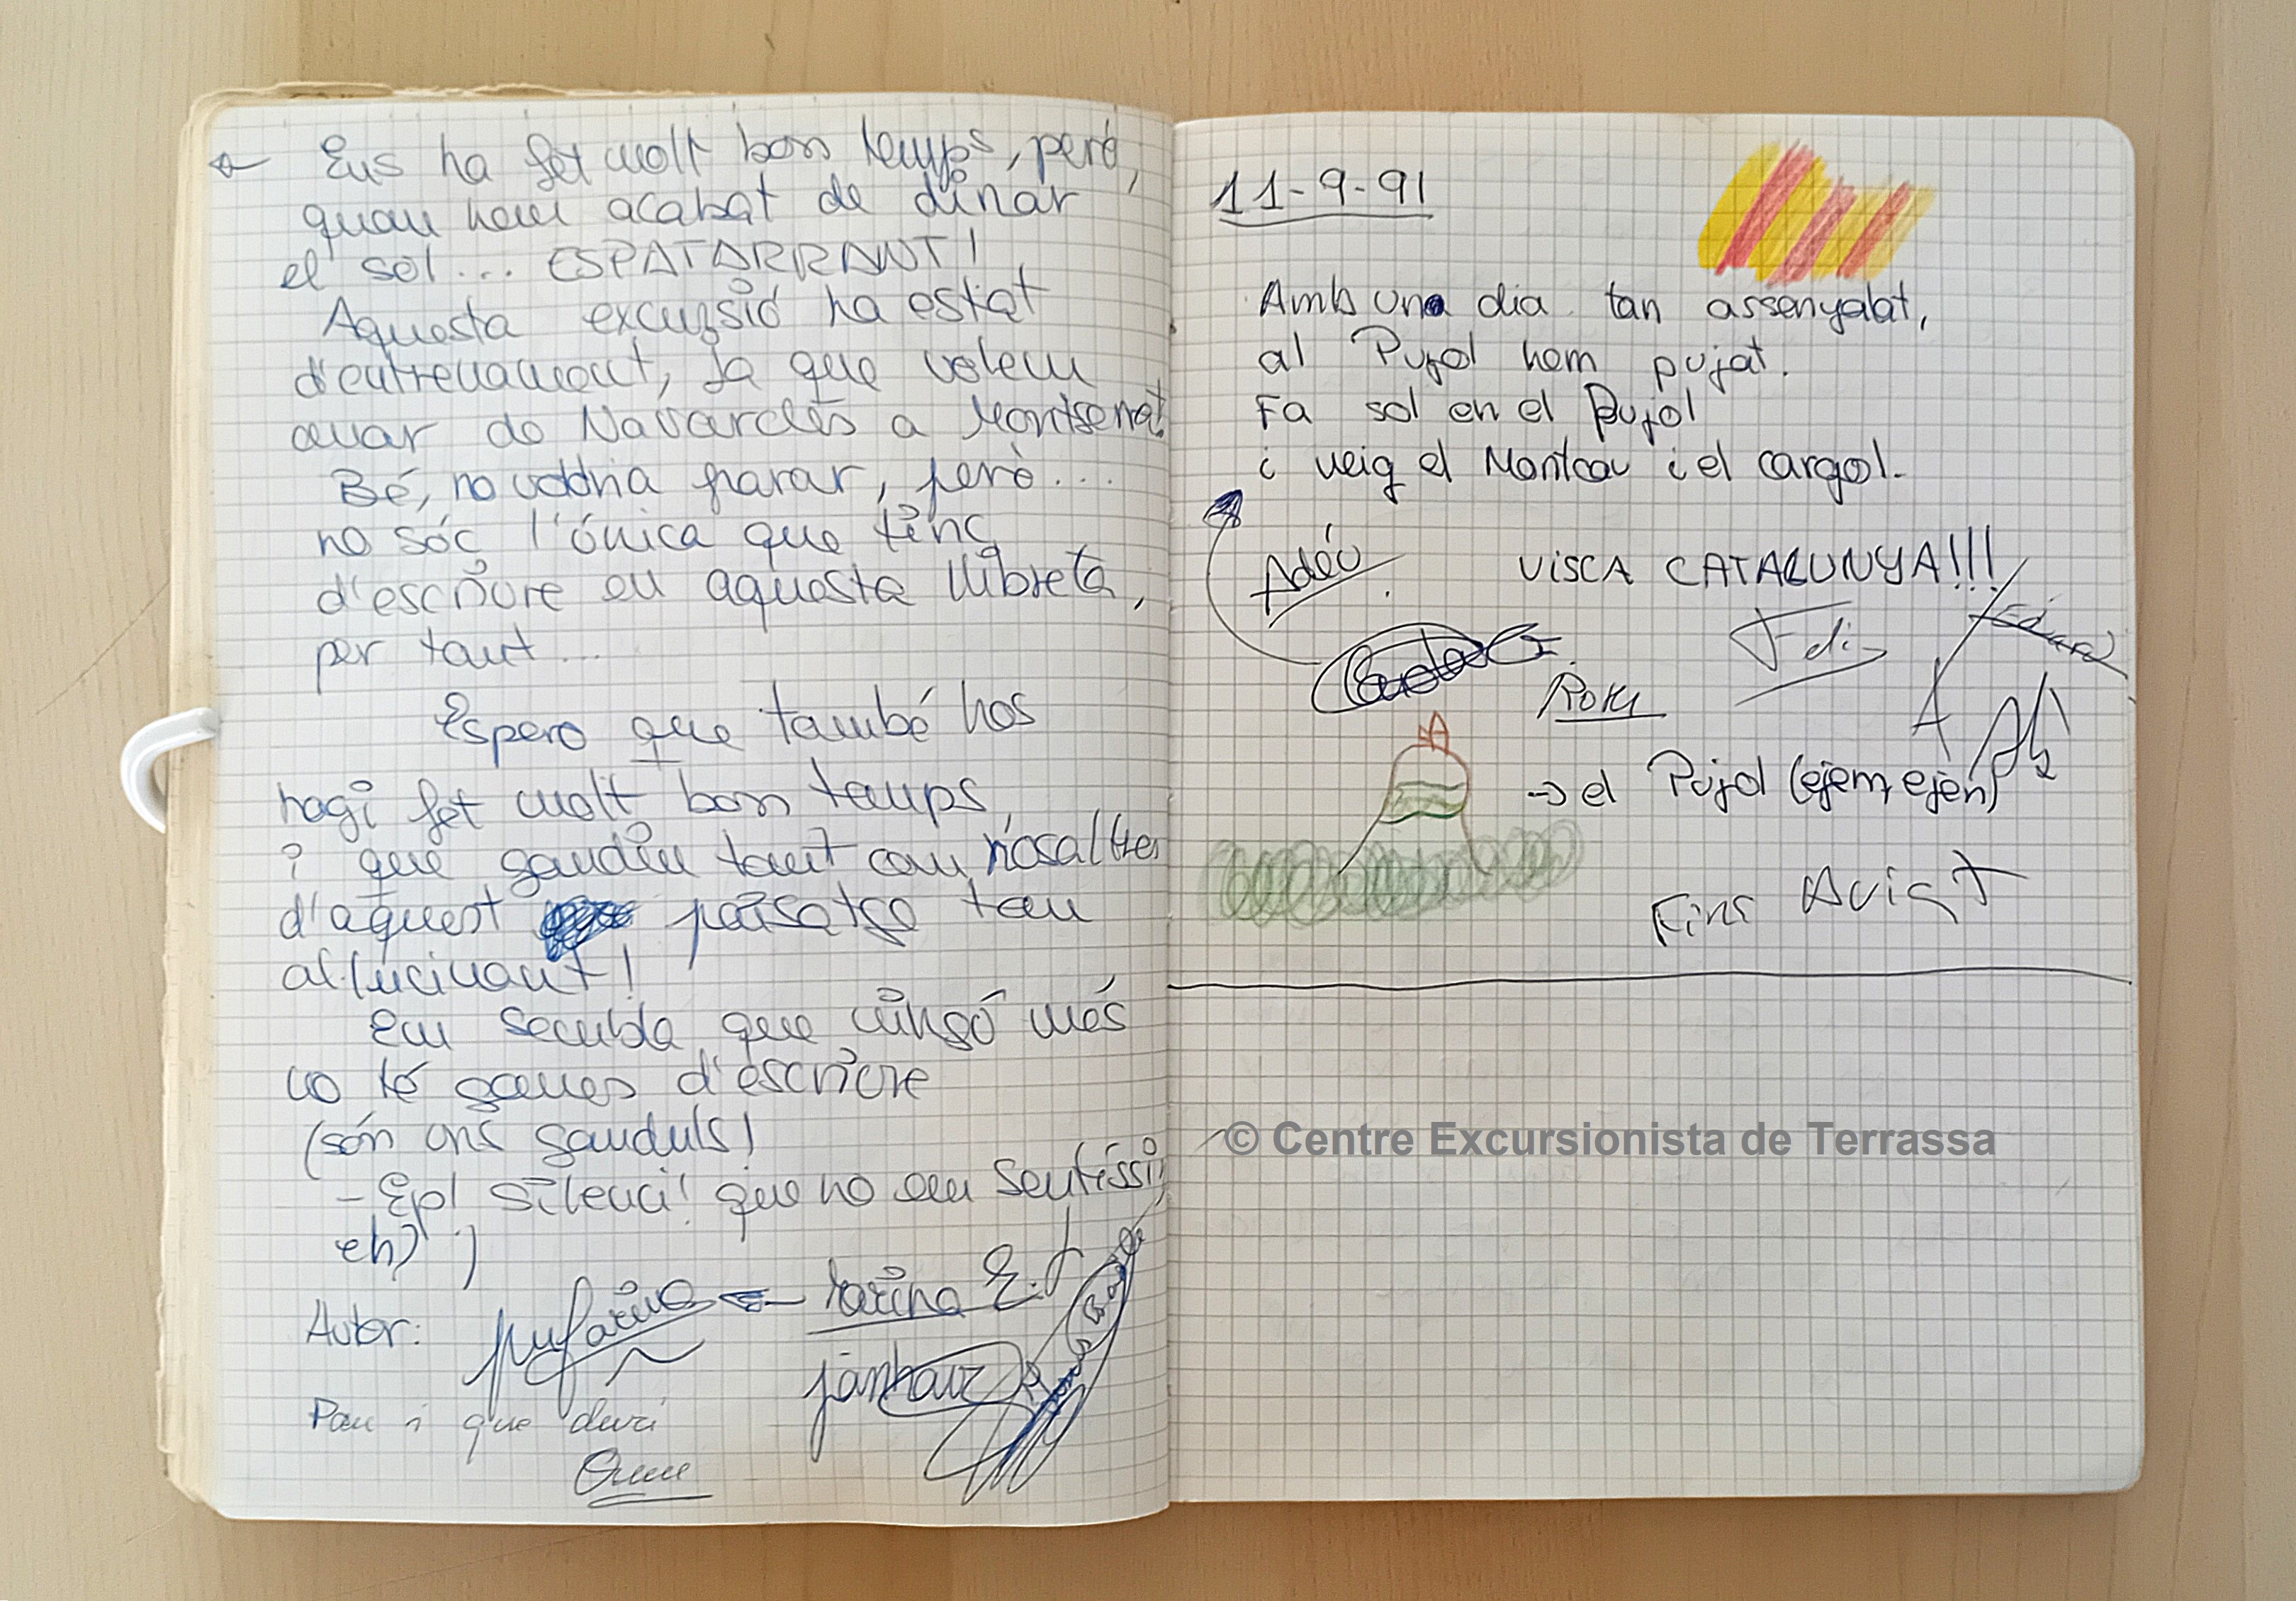 Ens ha fet molt bon temps, però,
quan hem acabat de dinar
el sol... ESPATARRANT!
Aquesta excursió ha estat
d'entrenament, ja que volem
anar de Navarcles a Montserrat.
Bé, no voldria parar, però...
no sóc l'única que tinc
d'escriure en aquesta llibreta,
per tant...
Espero que també hos
hagi fet molt bon temps
i que gaudiu tant com nosaltres
d'aquest paisatge tan
al·lucinant!
Em sembla que ningó més
no té ganes d'escriure
(són uns ganduls!
- Ep! Silenci! que no em sentissin,
eh)
Autor:
Pau i que duri
11-9-91
Amb una dia tan assenyalat,
al Pujol hem pujat.
Fa sol en el Pujol
i veig el Montcau i el cargol.
Adéu
VISCA CATALUNYA!!!
Edi
Eduard
→ el Pujol (ejem, ejem)
Fins Aviat
© Centre Excursionista de Terrassa